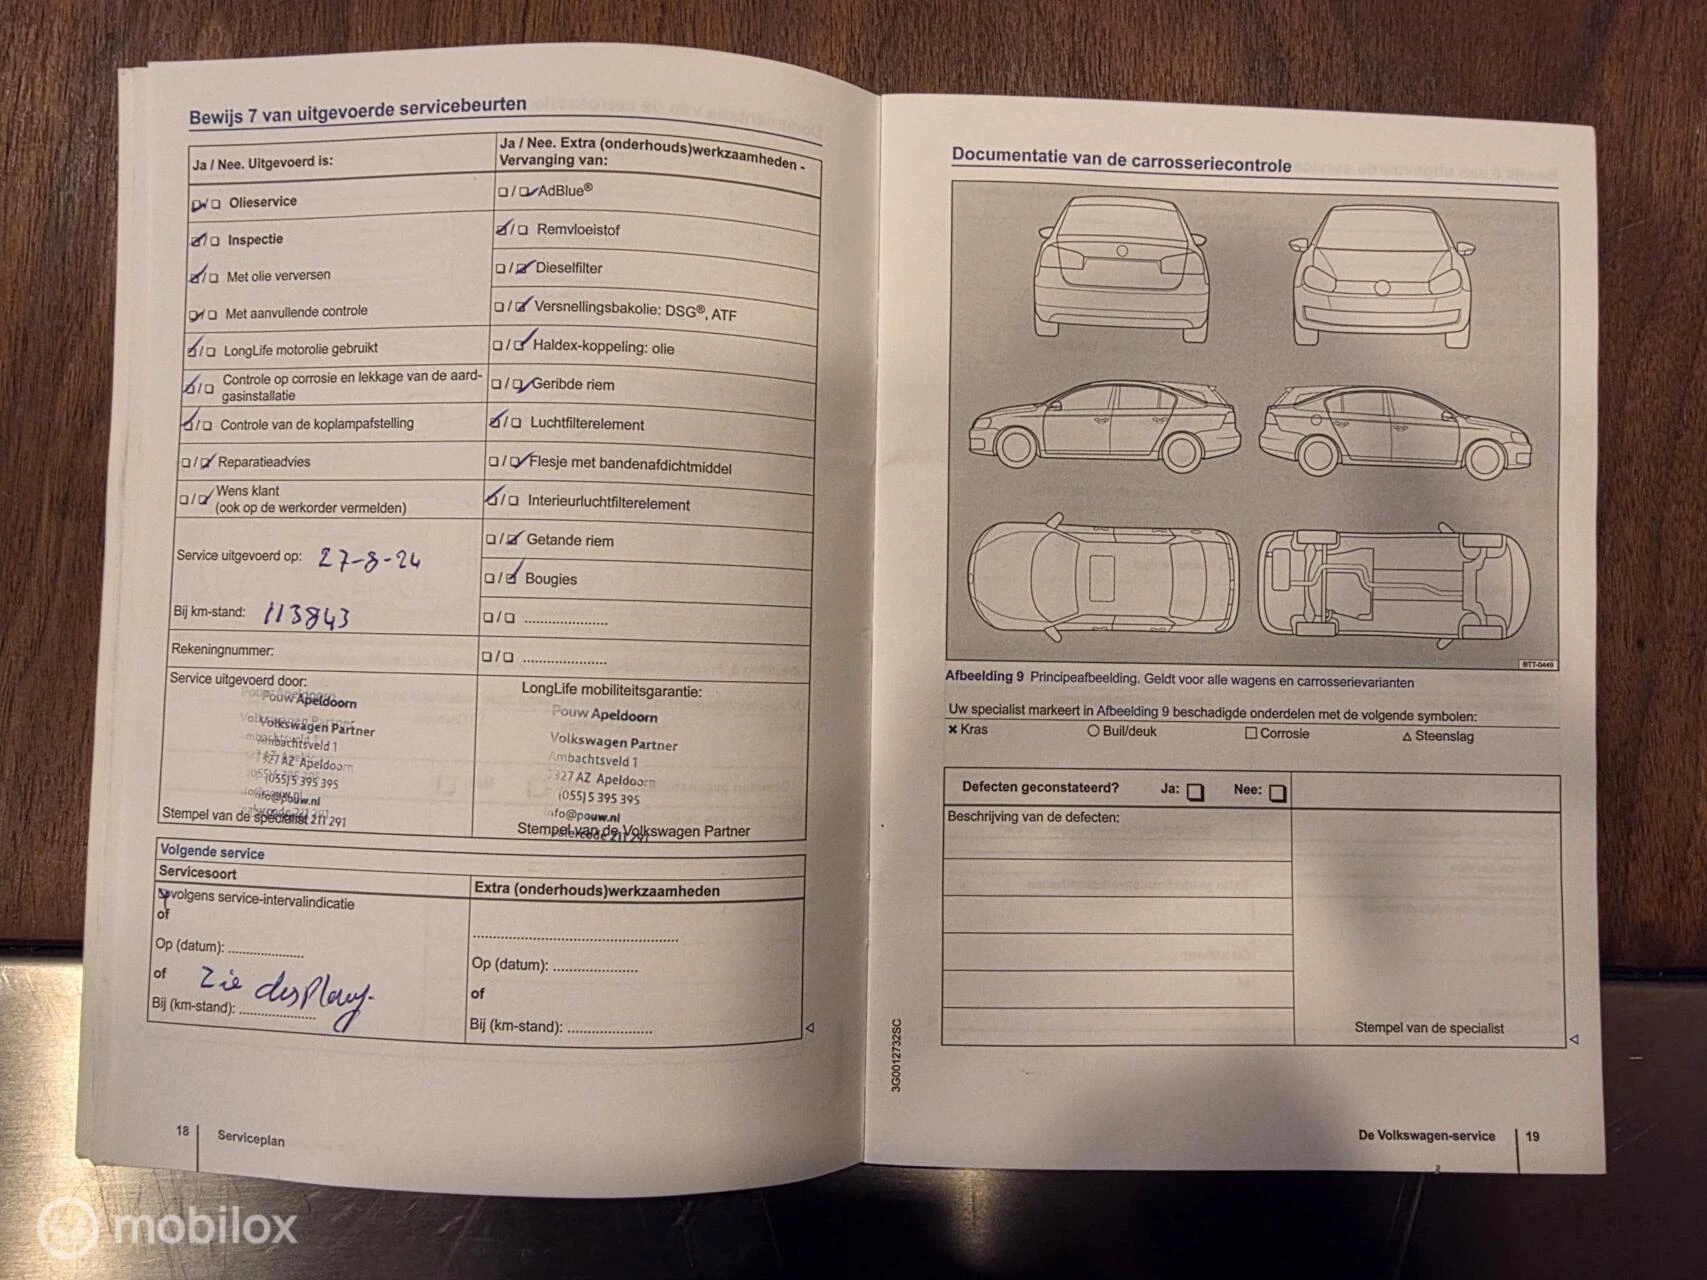 Bewijs 7 van uitgevoerde servicebeurten
Ja / Nee. Uitgevoerd is:
Olieservice
Inspectie
Met olie verversen
Met aanvullende controle
LongLife motorolie gebruikt
Controle op corrosie en lekkage van de aard-
gasinstallatie
Controle van de koplampafstelling
Reparatieadvies
Wens klant
(ook op de werkorder vermelden)
Service uitgevoerd op: 27-8-24
Bij km-stand: 113843
Rekeningnummer:
Ja / Nee. Extra (onderhouds)werkzaamheden -
Vervanging van:
AdBlue®
Remvloeistof
Dieselfilter
Versnellingsbakolie: DSG®, ATF
Haldex-koppeling: olie
Geribde riem
Luchtfilterelement
Flesje met bandenafdichtmiddel
Interieurluchtfilterelement
Getande riem
Bougies
Service uitgevoerd door:
Pouw Apeldoorn
Volkswagen Partner
Ambachtsveld 1
7327 AZ Apeldoorn
(055) 5 395 395
info@pouw.nl
dealercode 211 291
Stempel van de specialist
LongLife mobiliteitsgarantie:
Pouw Apeldoorn
Volkswagen Partner
Ambachtsveld 1
7327 AZ Apeldoorn
(055) 5 395 395
info@pouw.nl
dealercode 211 291
Stempel van de Volkswagen Partner
Volgende service
Servicesoort
volgens service-intervalindicatie
of
Op (datum): ....................
of zie display
Bij (km-stand): ....................
Extra (onderhouds)werkzaamheden
Op (datum): ....................
of
Bij (km-stand): ....................
18 Serviceplan
Documentatie van de carrosseriecontrole
BTT-0449
Afbeelding 9 Principeafbeelding. Geldt voor alle wagens en carrosserievarianten
Uw specialist markeert in Afbeelding 9 beschadigde onderdelen met de volgende symbolen:
Kras Buil/deuk Corrosie Steenslag
Defecten geconstateerd? Ja: Nee:
Beschrijving van de defecten:
Stempel van de specialist
3G0012732SC
De Volkswagen-service 19
mobilox